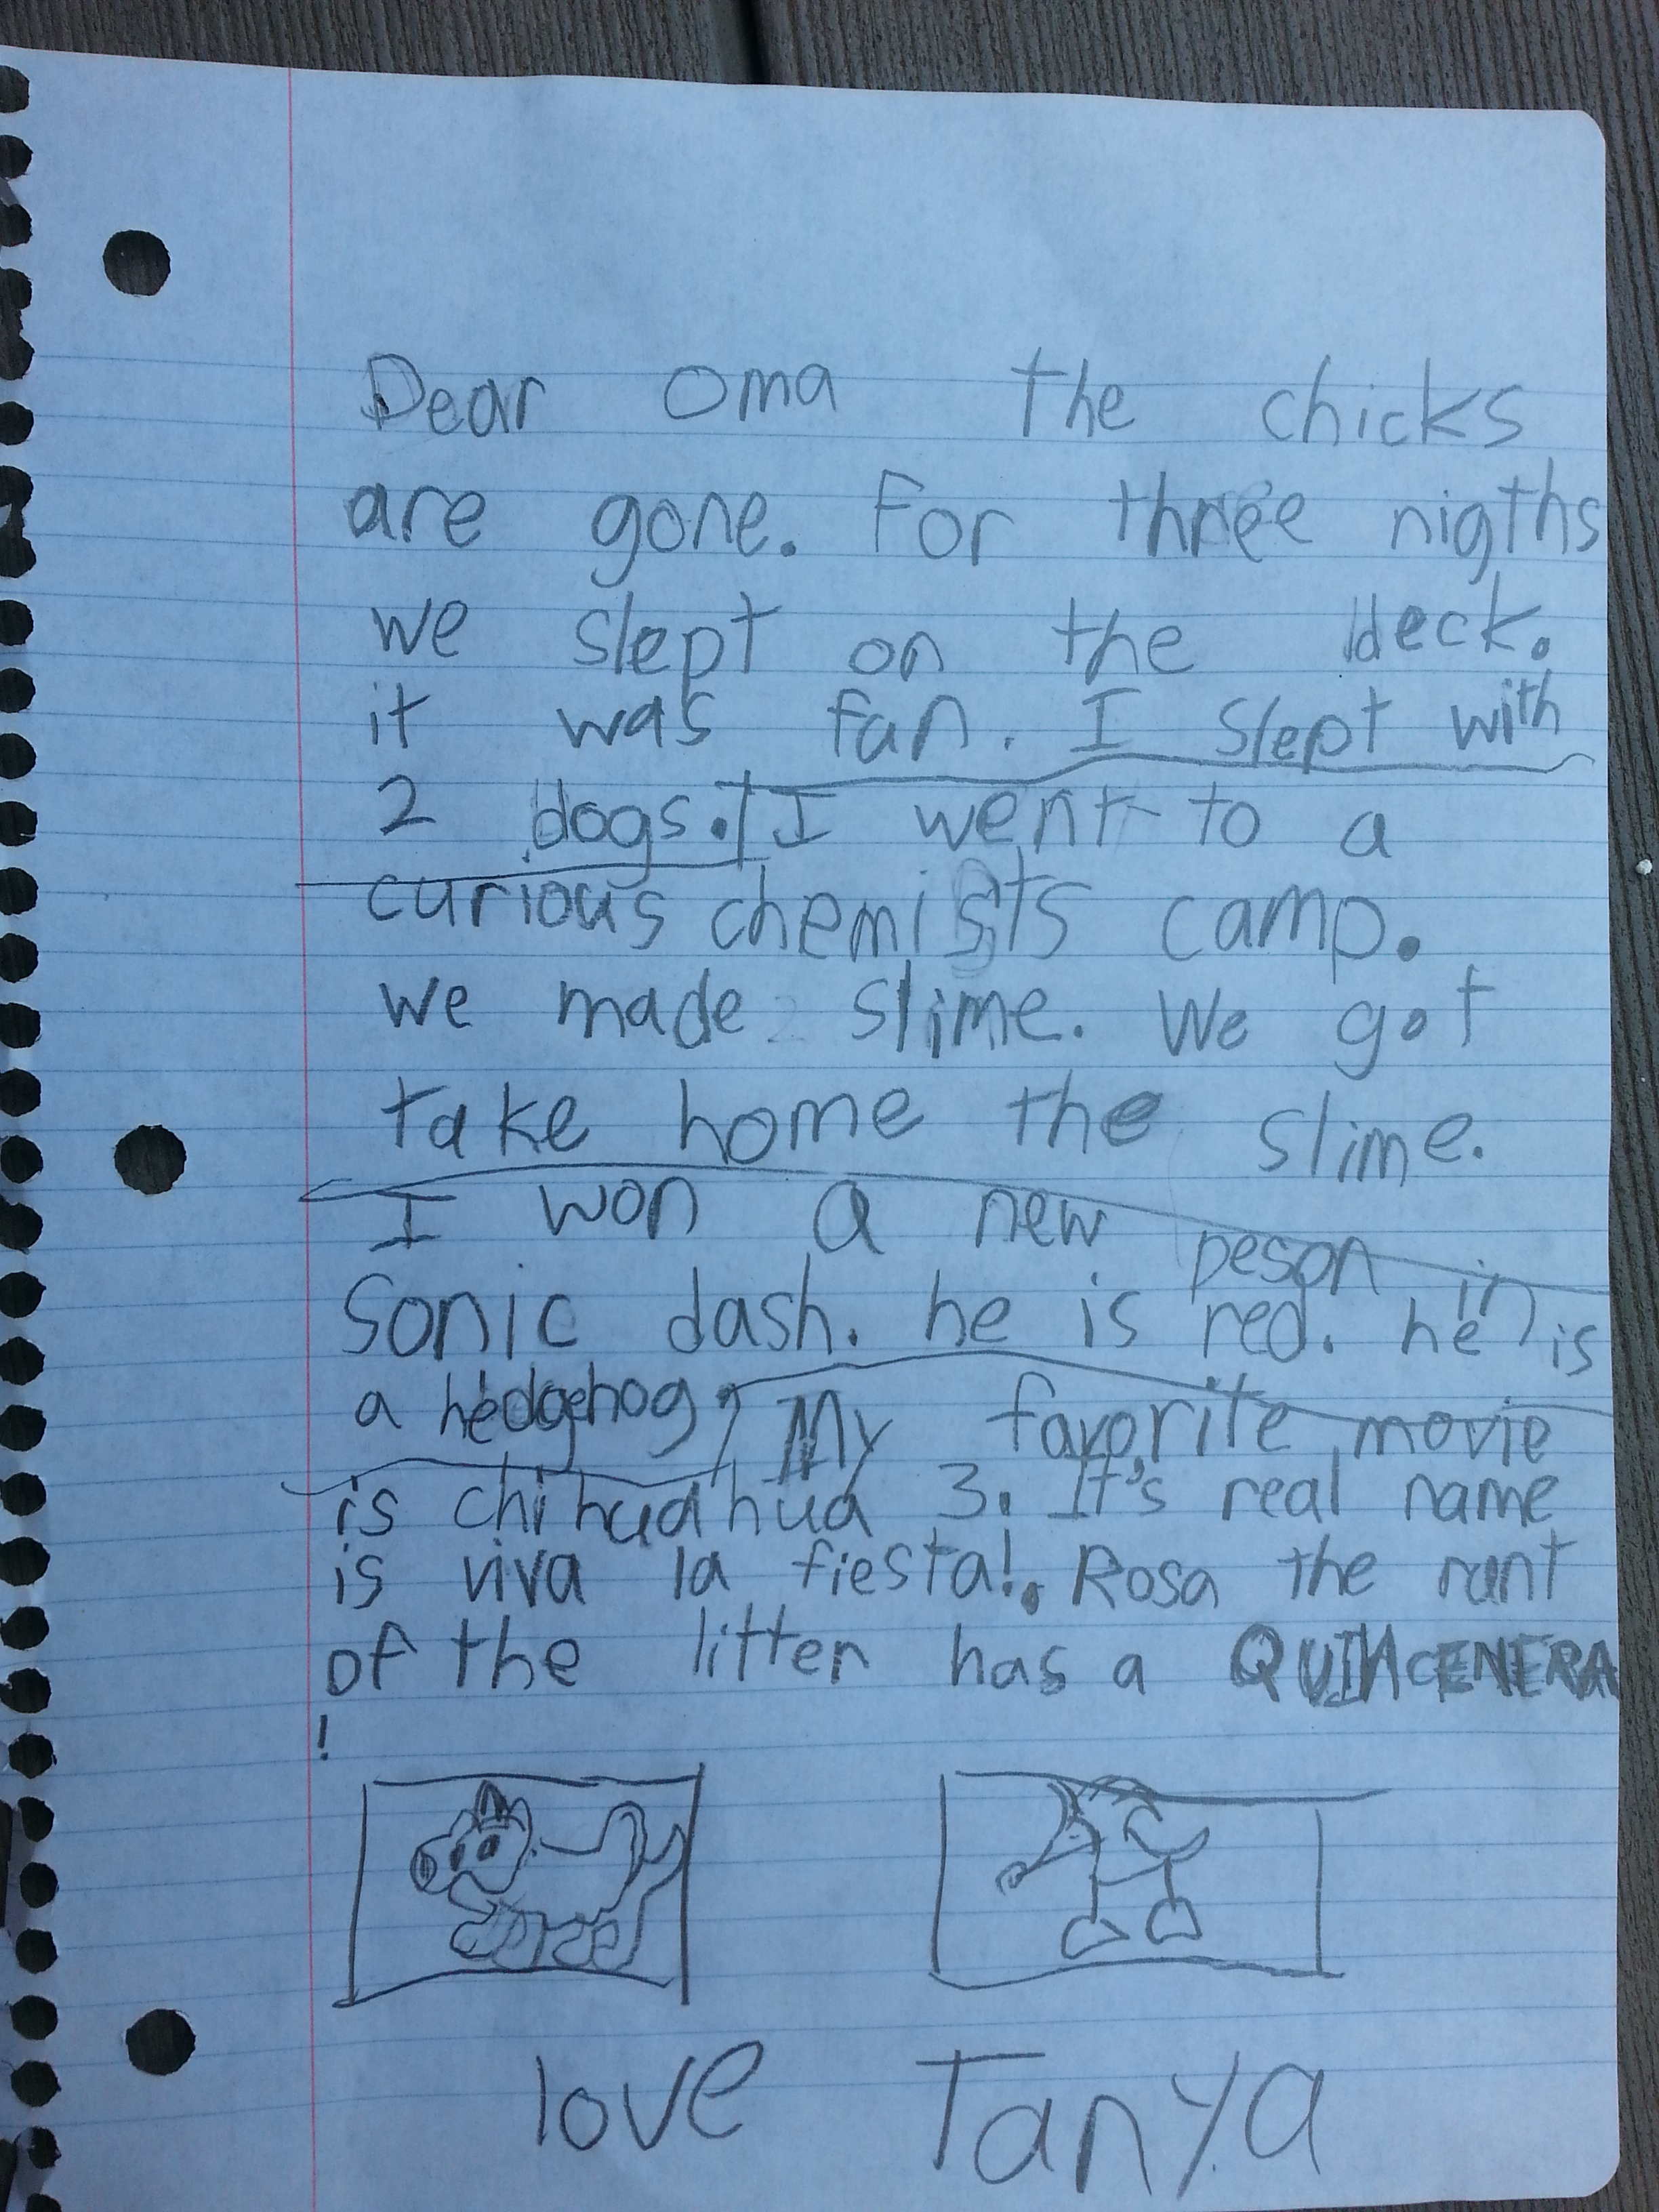 Dear Oma the chicks
are gone. For three nigths
we slept on the deck.
it was fun. I slept with
2 dogs. I went to a
curious chemists camp.
we made slime. We got
take home the slime.
I won a new peson in
Sonic dash. he is red. he is
a hedgehog. My favorite movie
is chihuahua 3. It's real name
is viva la fiesta!. Rosa the runt
of the litter has a QUINCENERA
!
love Tanya